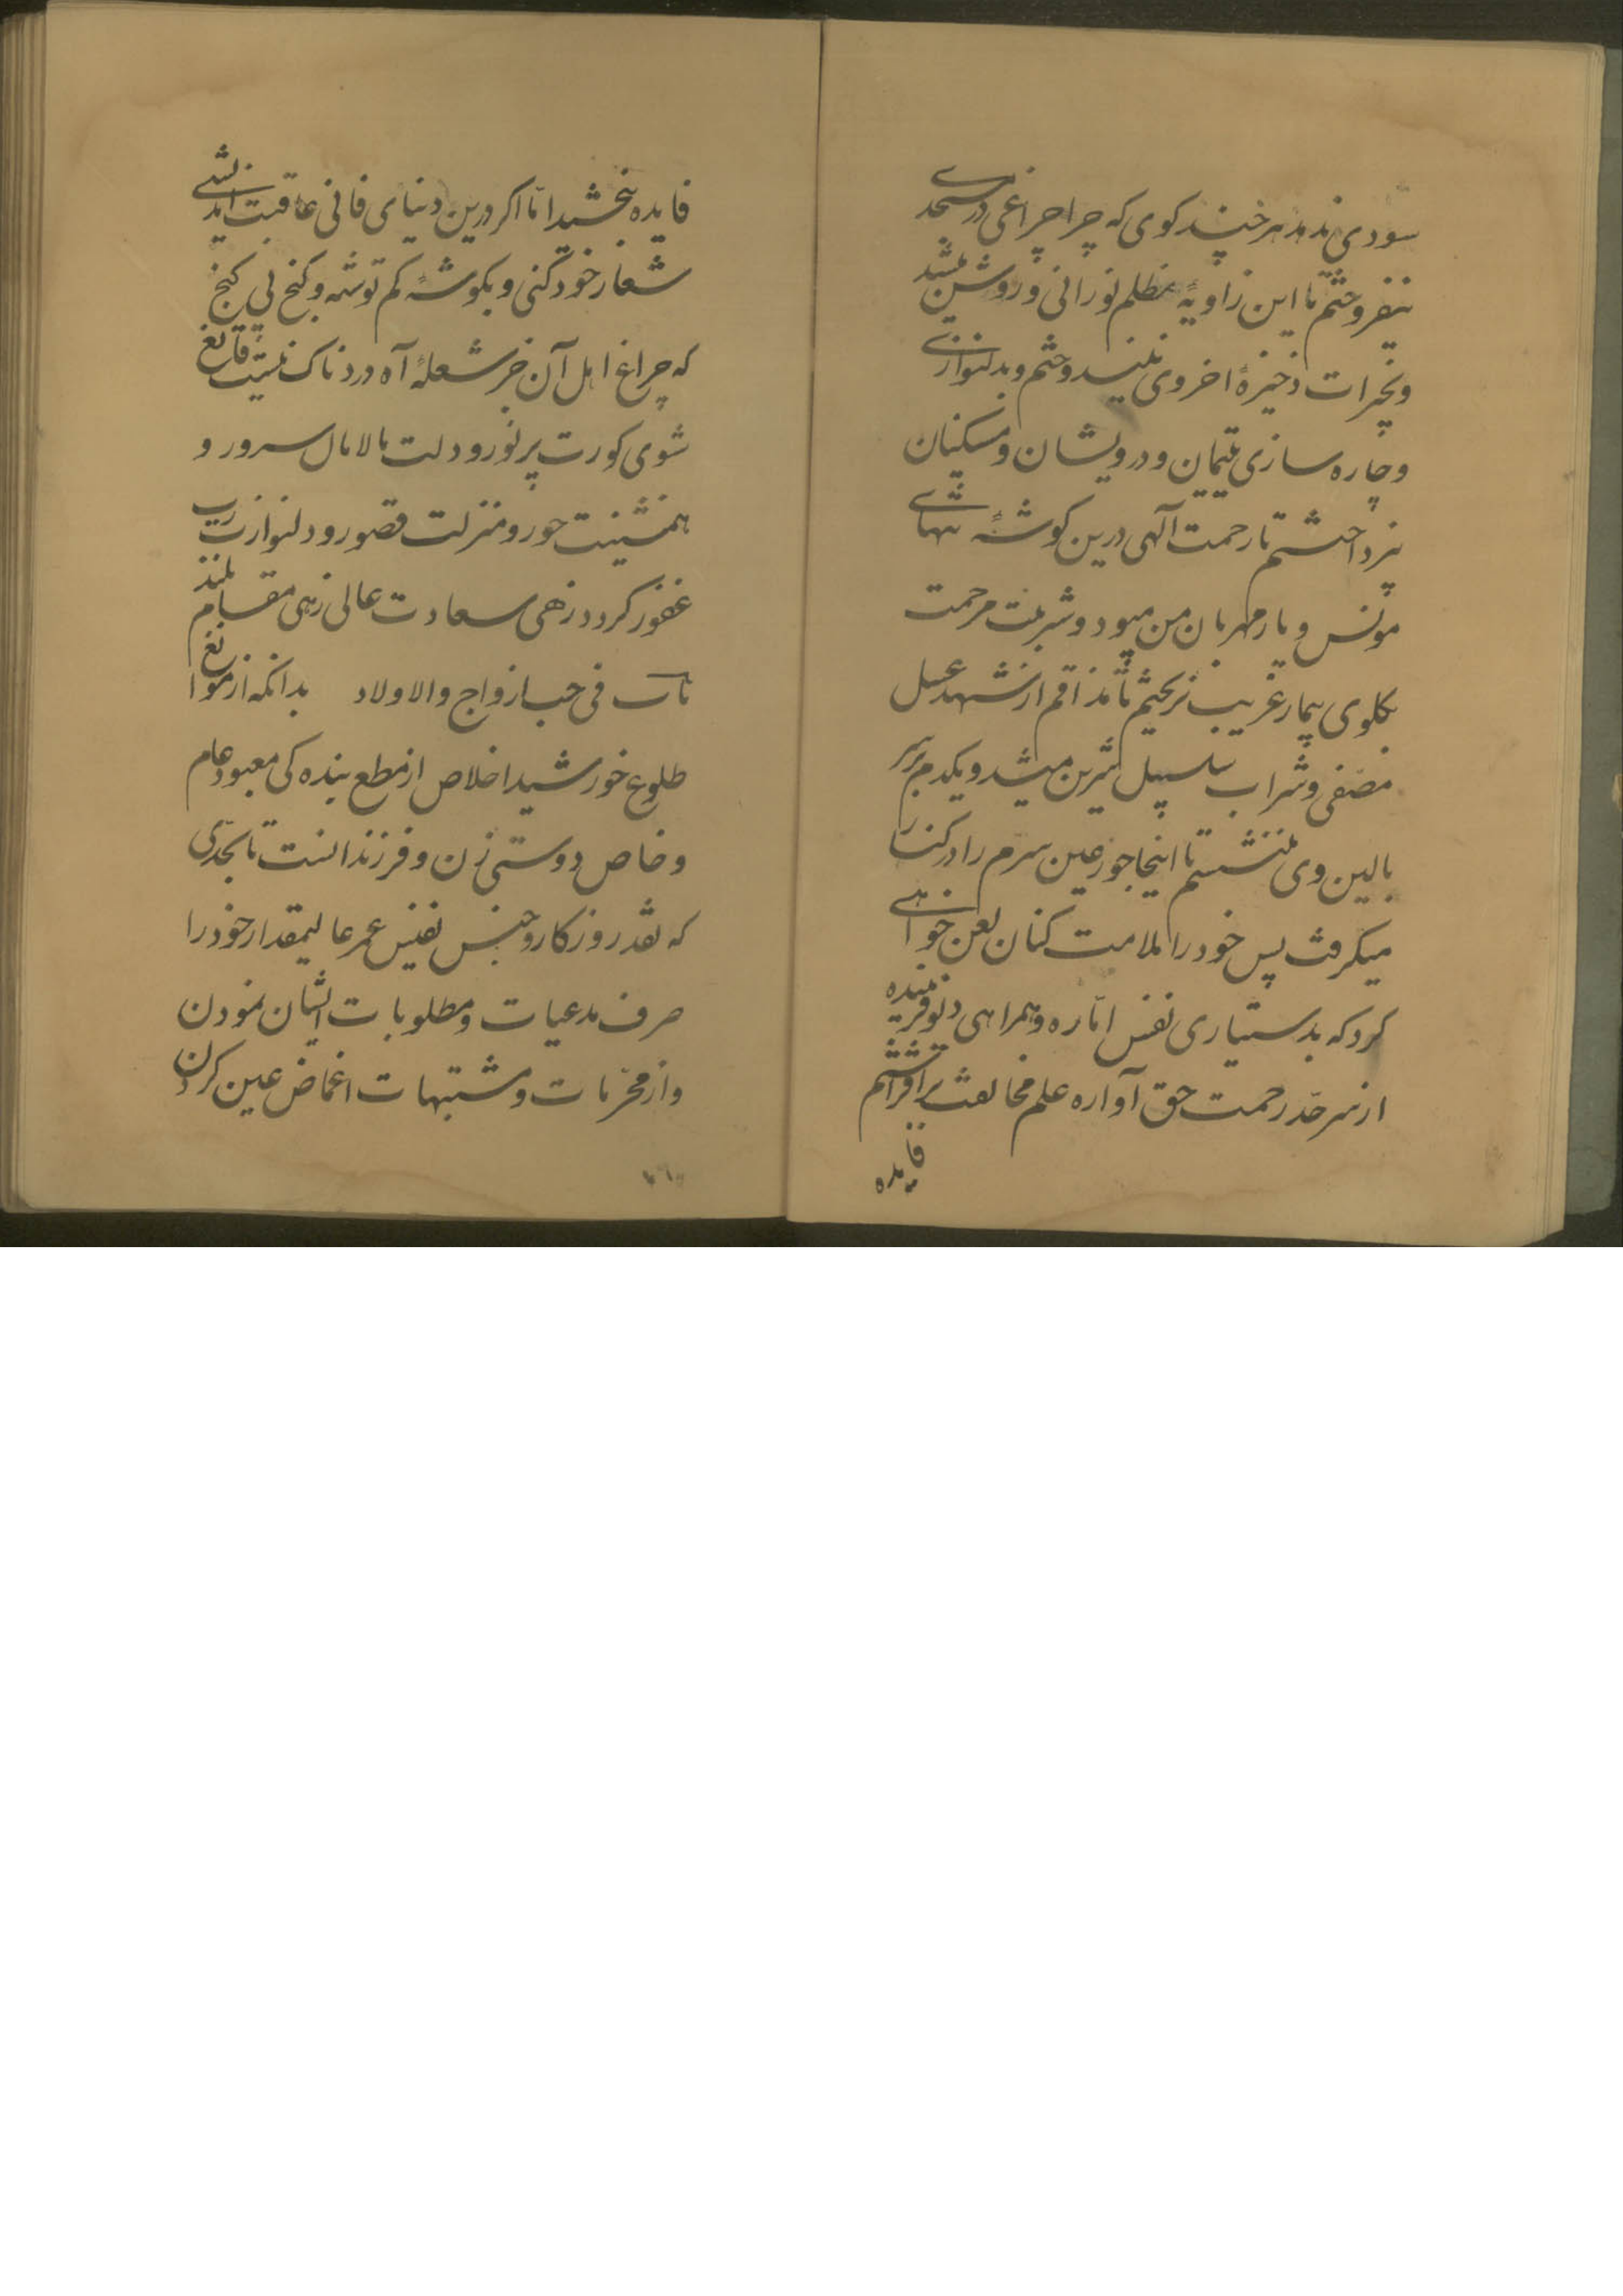 سودی ندهد هرچند کوی که چرا چراغی در مسجدے
نیفروختم تا این زاویهٔ مظلم نورانی و روشن میشد
و بخیرات ذخیرهٔ اخروی نیندوختم و بدلنوازے
و چاره سازی یتیمان و درویشان و مسکینان
نپرداختم تا رحمت آلهی درین کوشهٔ تنهاے
مونس و یار مهربان من میبود و شربت مرحمت
بکلوی بیمار غریب نریختم تا مذاقم از شهد عسل
مصفی و شراب سلسبیل شیرین میشد و یکدم بر سر
بالین وی ننشستم تا اینجا حور عین سرم را در کنار
میکرفت پس خود را ملامت کنان لعن خواهے
کرد که بدستیاری نفس امّاره و همراهی دیو فریبنده
از سر حدّ رحمت حق آواره علم مخالفت برافراشتم
فایده
فایده نبخشید امّا اکر درین دنیای فانی عاقبت اندیشے
شعار خود کنی و بکوشهٔ کم توشه و کنج بی کنج
که چراغ اهل آن جز شعلهٔ آه دردناک نیست قانع
شوی کورت پر نور و دلت مالامال سرور و
همنشینت حور و منزلت قصور و دلنوازت رب
غفور کردد زهی سعادت عالی زهی مقام بلند
باب فی حب ازواج والاولاد بدانکه از موانع
طلوع خورشید اخلاص از مطلع بنده کی معبود عام
و خاص دوستی زن و فرزندانست تا بحدّی
که نقد روزکار و جنس نفیس عمر عالیمقدار خود را
صرف مدعیات و مطلوبات ایشان نمودن
و از محرّمات و مشتبهات اغماض عین کردن